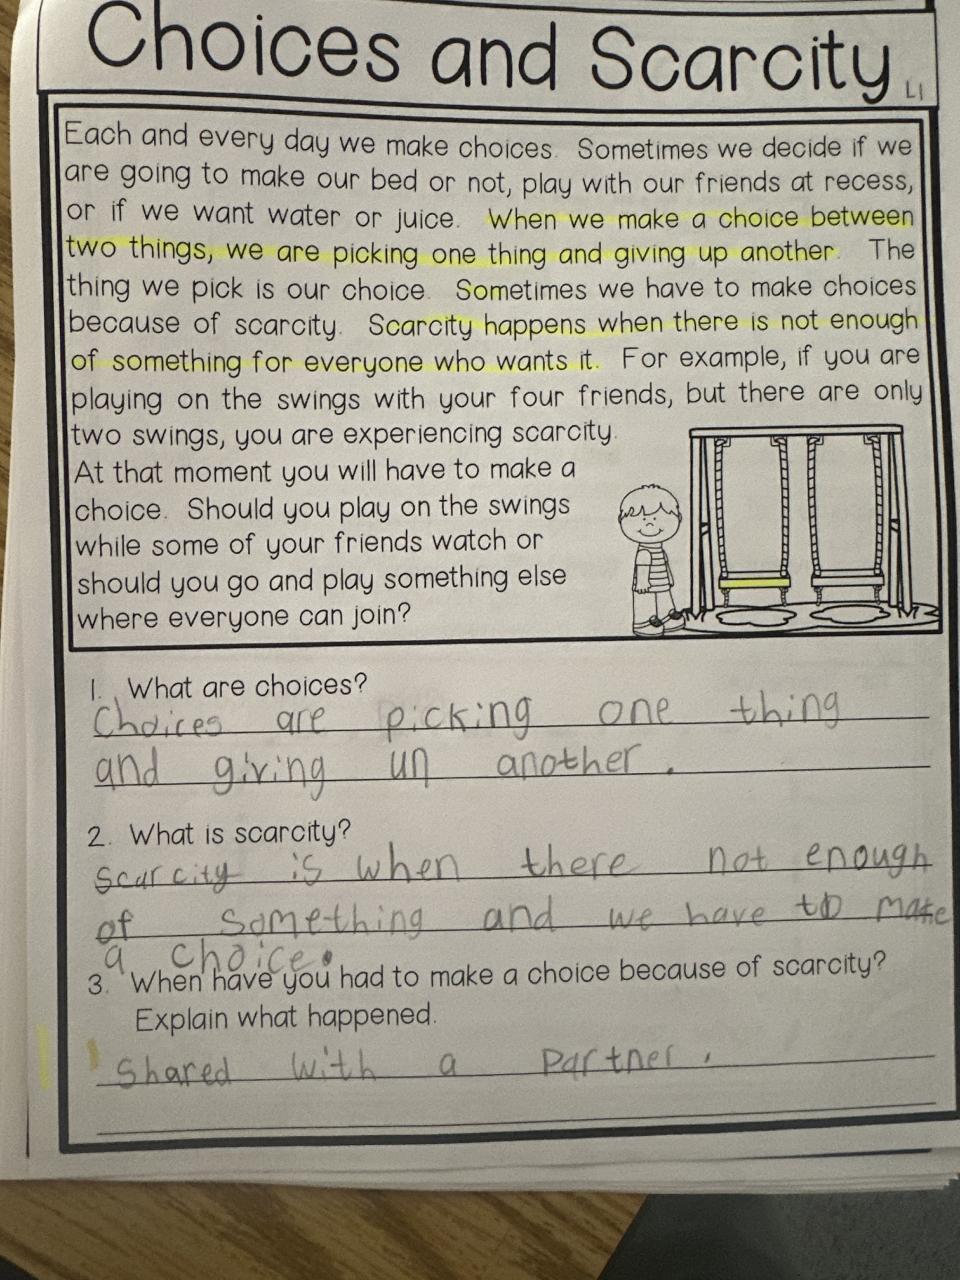 Choices and Scarcity
L1
Each and every day we make choices. Sometimes we decide if we
are going to make our bed or not, play with our friends at recess,
or if we want water or juice. When we make a choice between
two things, we are picking one thing and giving up another. The
thing we pick is our choice. Sometimes we have to make choices
because of scarcity. Scarcity happens when there is not enough
of something for everyone who wants it. For example, if you are
playing on the swings with your four friends, but there are only
two swings, you are experiencing scarcity.
At that moment you will have to make a
choice. Should you play on the swings
while some of your friends watch or
should you go and play something else
where everyone can join?
1. What are choices?
Choices are picking one thing
and giving up another.
2. What is scarcity?
Scarcity is when there not enough
of something and we have to make
a choice.
3. When have you had to make a choice because of scarcity?
Explain what happened.
Shared with a partner.